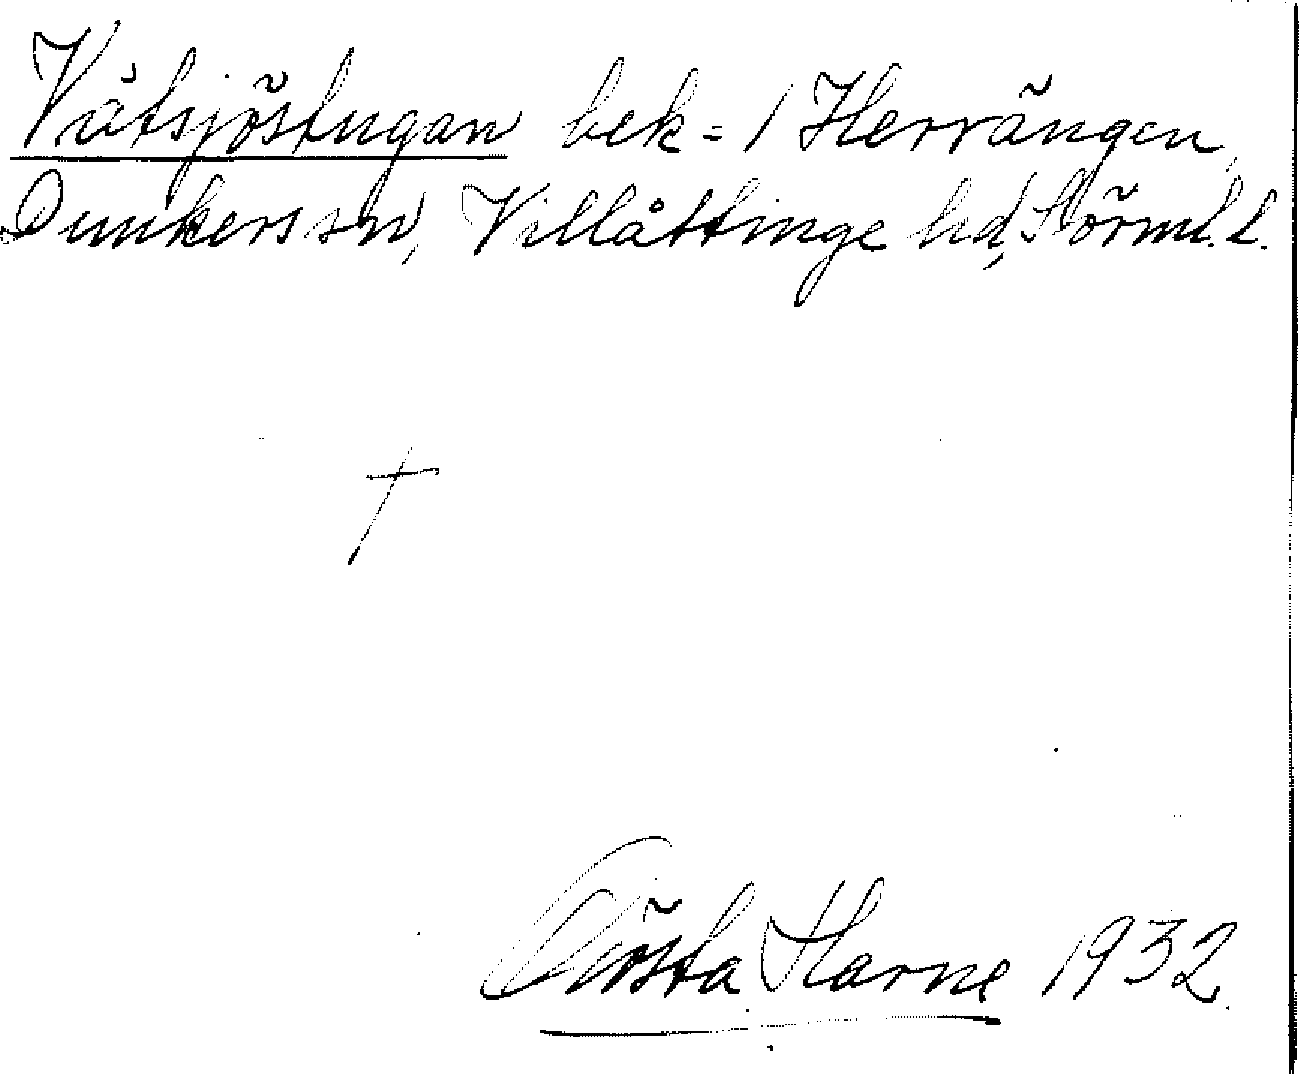 Våtsjöstugan bek = / Herrängen,
Dunkers sn, Villåttinge hd, Sörml. l.
†
Gösta Harne 1932